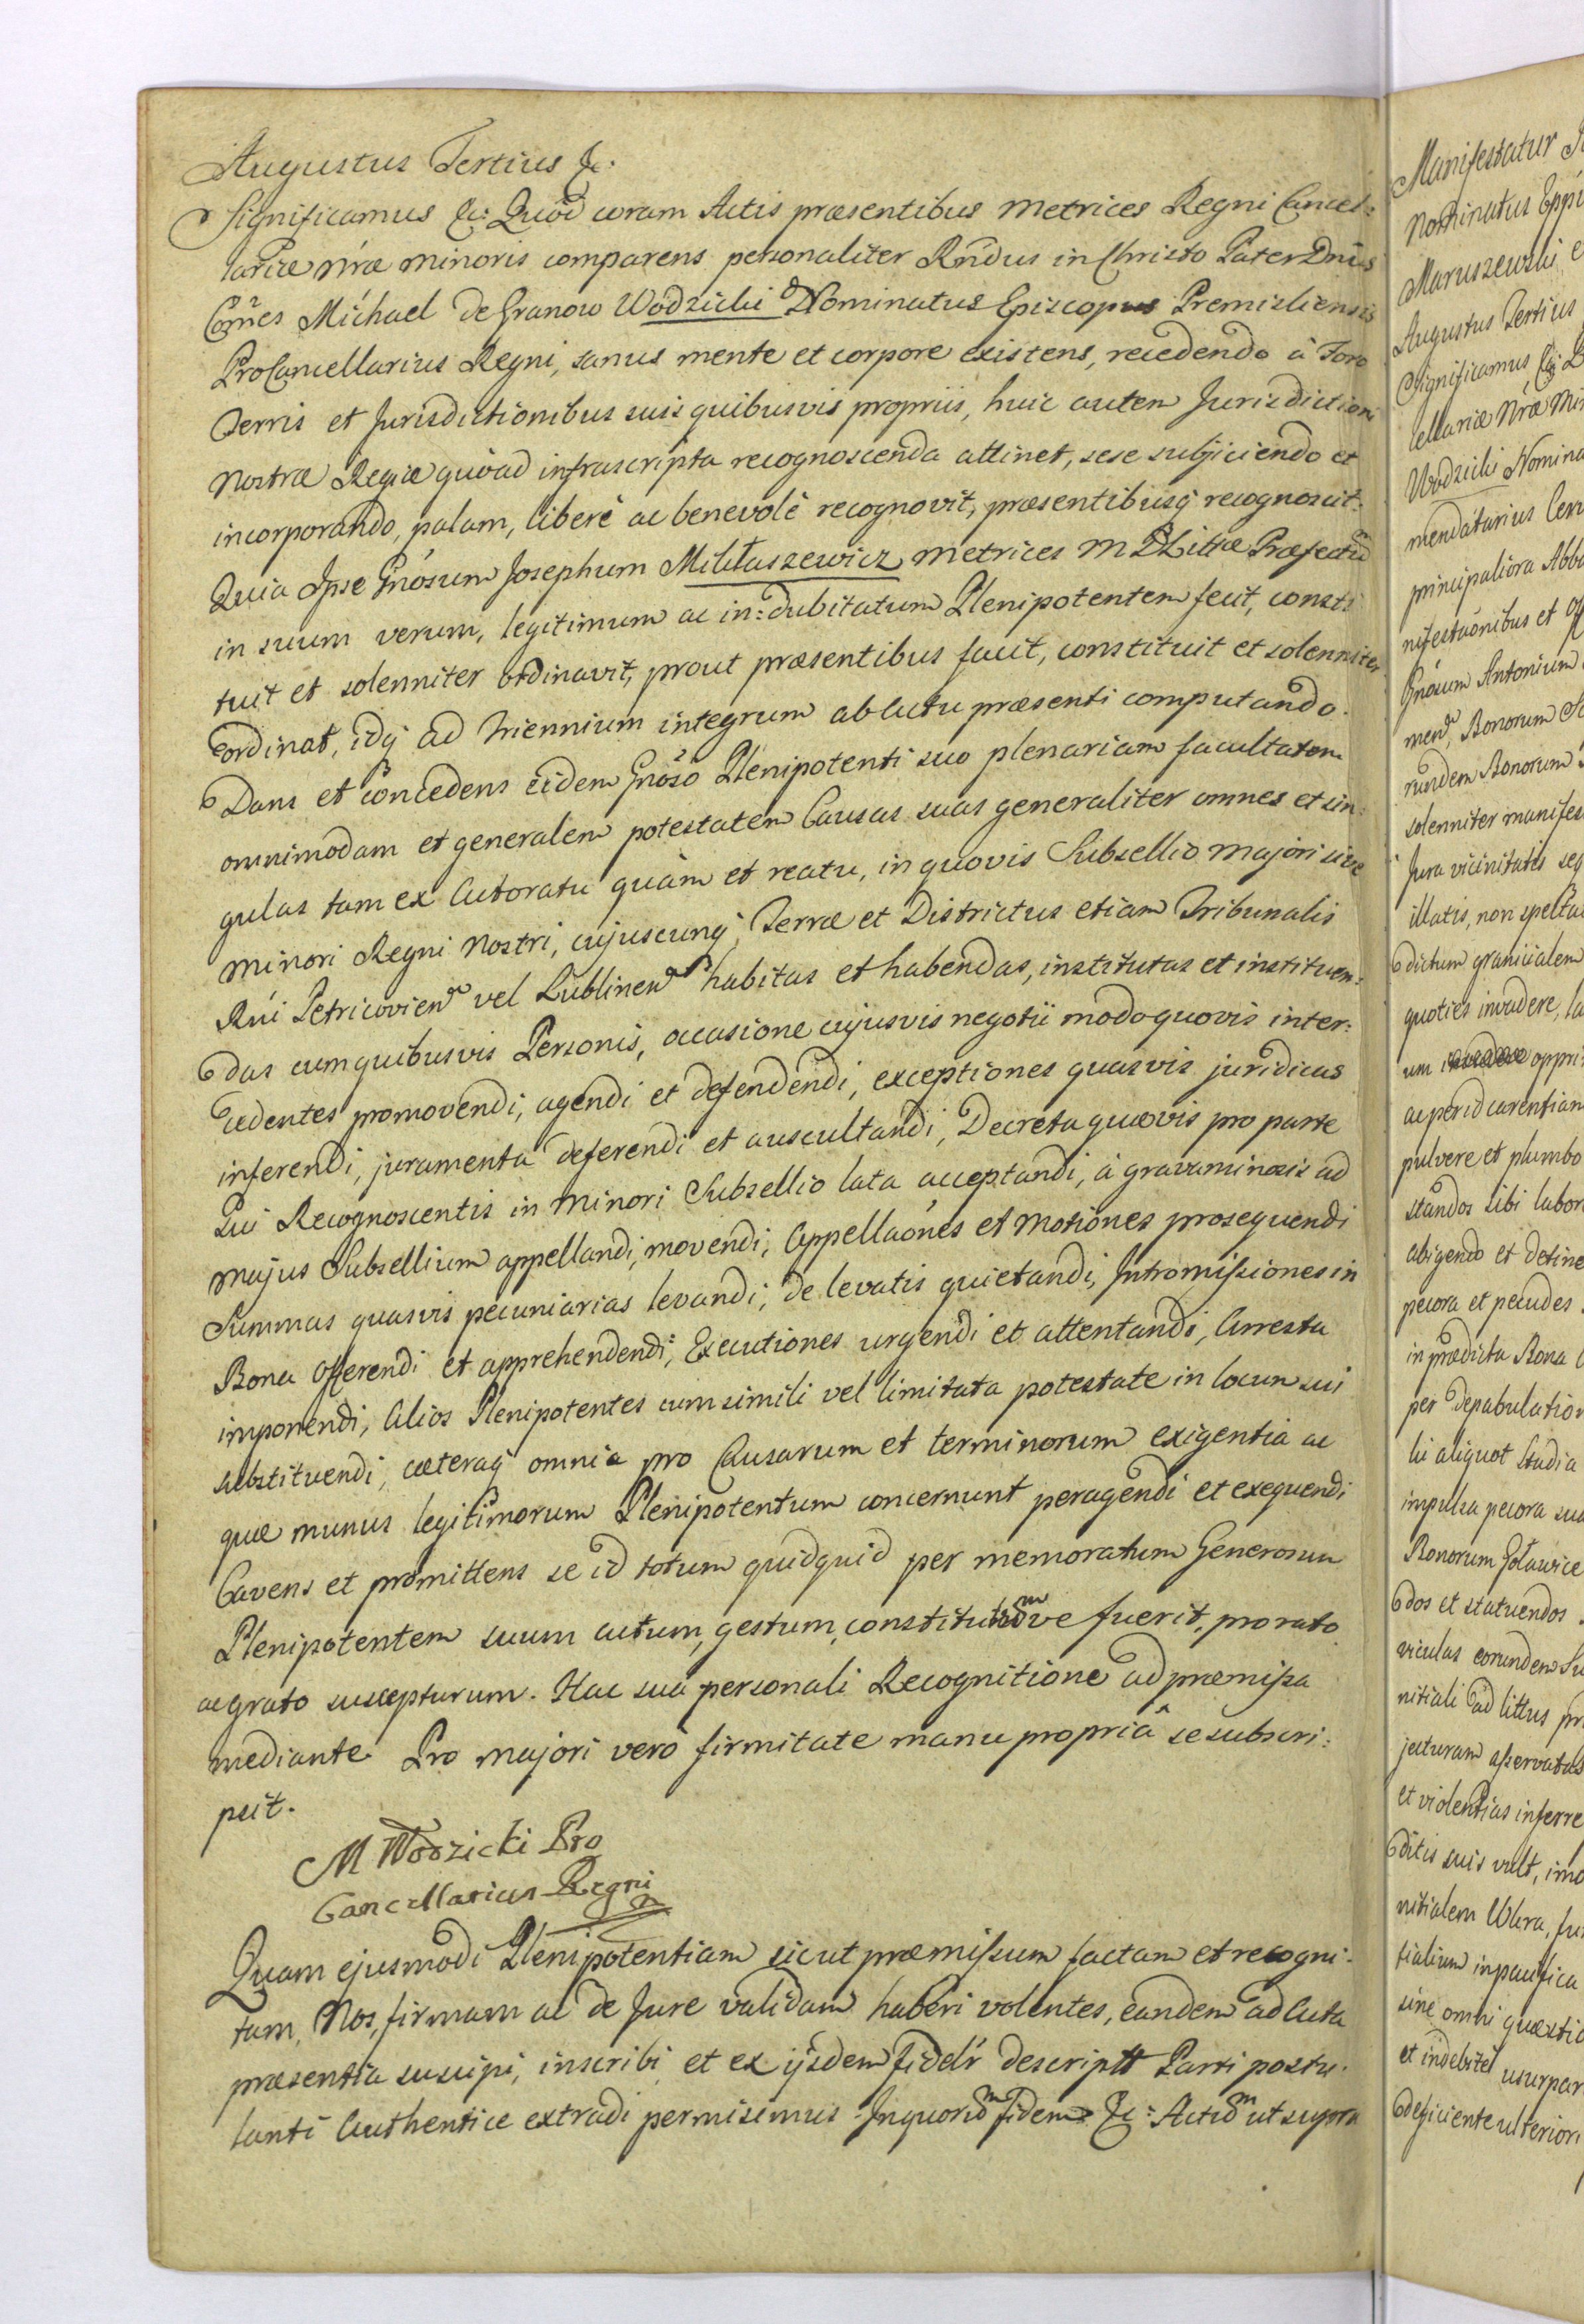 Augustus Tertius &c.
Significamus &c: Quòd coram Actis præsentibus Metrices Regni Cancel=
lariæ Nræ minoris comparens personaliter Rndus in Christo Pater Dnus
Comes Michael de Granow Wodzicki Nominatus Episcopus Premisliensis
ProCancellarius Regni, sanus mente et corpore existens, recedendo à Foro
Terris et Jurisdictionibus suis quibusvis propriis, huic autem Jurisdictioni
Nostræ Regiæ quoad infrascripta recognoscenda attinet, sese subjiciendo et
incorporando, palam, liberè ac benevolè recognovit, præsentibusq recognoscit.
Quia Ipse Gnosum Josephum Mikłaszewicz Metrices M D Littæ Præfectum
in suum verum, legitimum ac in=dubitatum Plenipotentem fecit, consti
tuit et solenniter ordinavit, prout præsentibus facit, constituit et solenniter
ordinat, idq ad triennium integrum ab actu præsenti computando.
Dans et concedens eidem Gnoso Plenipotenti suo plenariam facultatem
omnimodam et generalem potestatem Causas suas generaliter omnes et sin=
gulas tam ex Actoratu quàm et reatu, in quovis Subsellio majori sive
minori Regni Nostri, cujuscunq Terræ et Districtus etiam Tribunalis
Rni Petricovien vel Lublinen habitas et habendas, institutas et instituen=
das cum quibusvis Personis, occasione cujusvis negotii modo quovis inter=
cedentes promovendi, agendi et defendendi, exceptiones quasvis juridicas
inferendi, juramenta deferendi et auscultandi, Decreta quævis pro parte
Sui Recognoscentis in minori Subsellio lata acceptandi, à gravaminosis ad
majus Subsellium appellandi, movendi, Appellaones et motiones prosequendi
Summas quasvis pecuniarias levandi, de levatis quietandi, Intromissiones in
Bona offerendi et apprehendendi, Executiones urgendi et attentandi, Arresta
imponendi, Alios Plenipotentes cum simili vel limitata potestate in locum sui
substituendi, cæteraq omnia pro Causarum et terminorum exigentia ac
quæ munus legitimorum Plenipotentum concernunt peragendi et exequendi
Cavens et promittens se id totum quidquid per memoratum Generosum
Plenipotentem suum actum, gestum, constitutumve fuerit, pro rato
ac grato suscepturum. Hac sua personali Recognitione ad præmissa
mediante. Pro majori verò firmitate manu propriâ se subscri=
psit.
M Wodzicki Pro
Cancellarius Regni
Quam ejusmodi Plenipotentiam sicut præmissum factam et recogni=
tam, Nos, firmam ac de Jure validam haberi volentes, eandem ad Acta
præsentia suscipi, inscribi et ex ijsdem fidelr descriptt Parti postu=
lanti Authentice extradi permisimus. In quorum fidem &c: Actum ut supra
Manifestatur
Nominatus Eppi
Maruszewski
Augustus Tertius
Significamus &c:
cellariæ Nræ Min
Wodzicki Nomina
mendatarius
principaliora Abba
nifestaonibus et
Gnosum Antonium
men, Bonorum
rundem Bonorum
solenniter manifes
Jura vicinitatis seq
illatis, non specta
dictum granicialem
quoties invadere, la
um oppri
ac per id carentiam
pulvere et plumbo
standos sibi labor
abigendo et detine
pecora et pecudes
in prædicta Bona
per depabulation
li aliquot Stadia
impulsa pecora sua
Bonorum Goławice
dos et statuendos
viculas eorundem Su
nitiali ad littus pr
jecturam asservatas
et violentias inferre
ditis suis vult, imo
nitialem
tialium in pacifica
sine omni quæstio
et indebitè usurpar
deficiente ulteriori